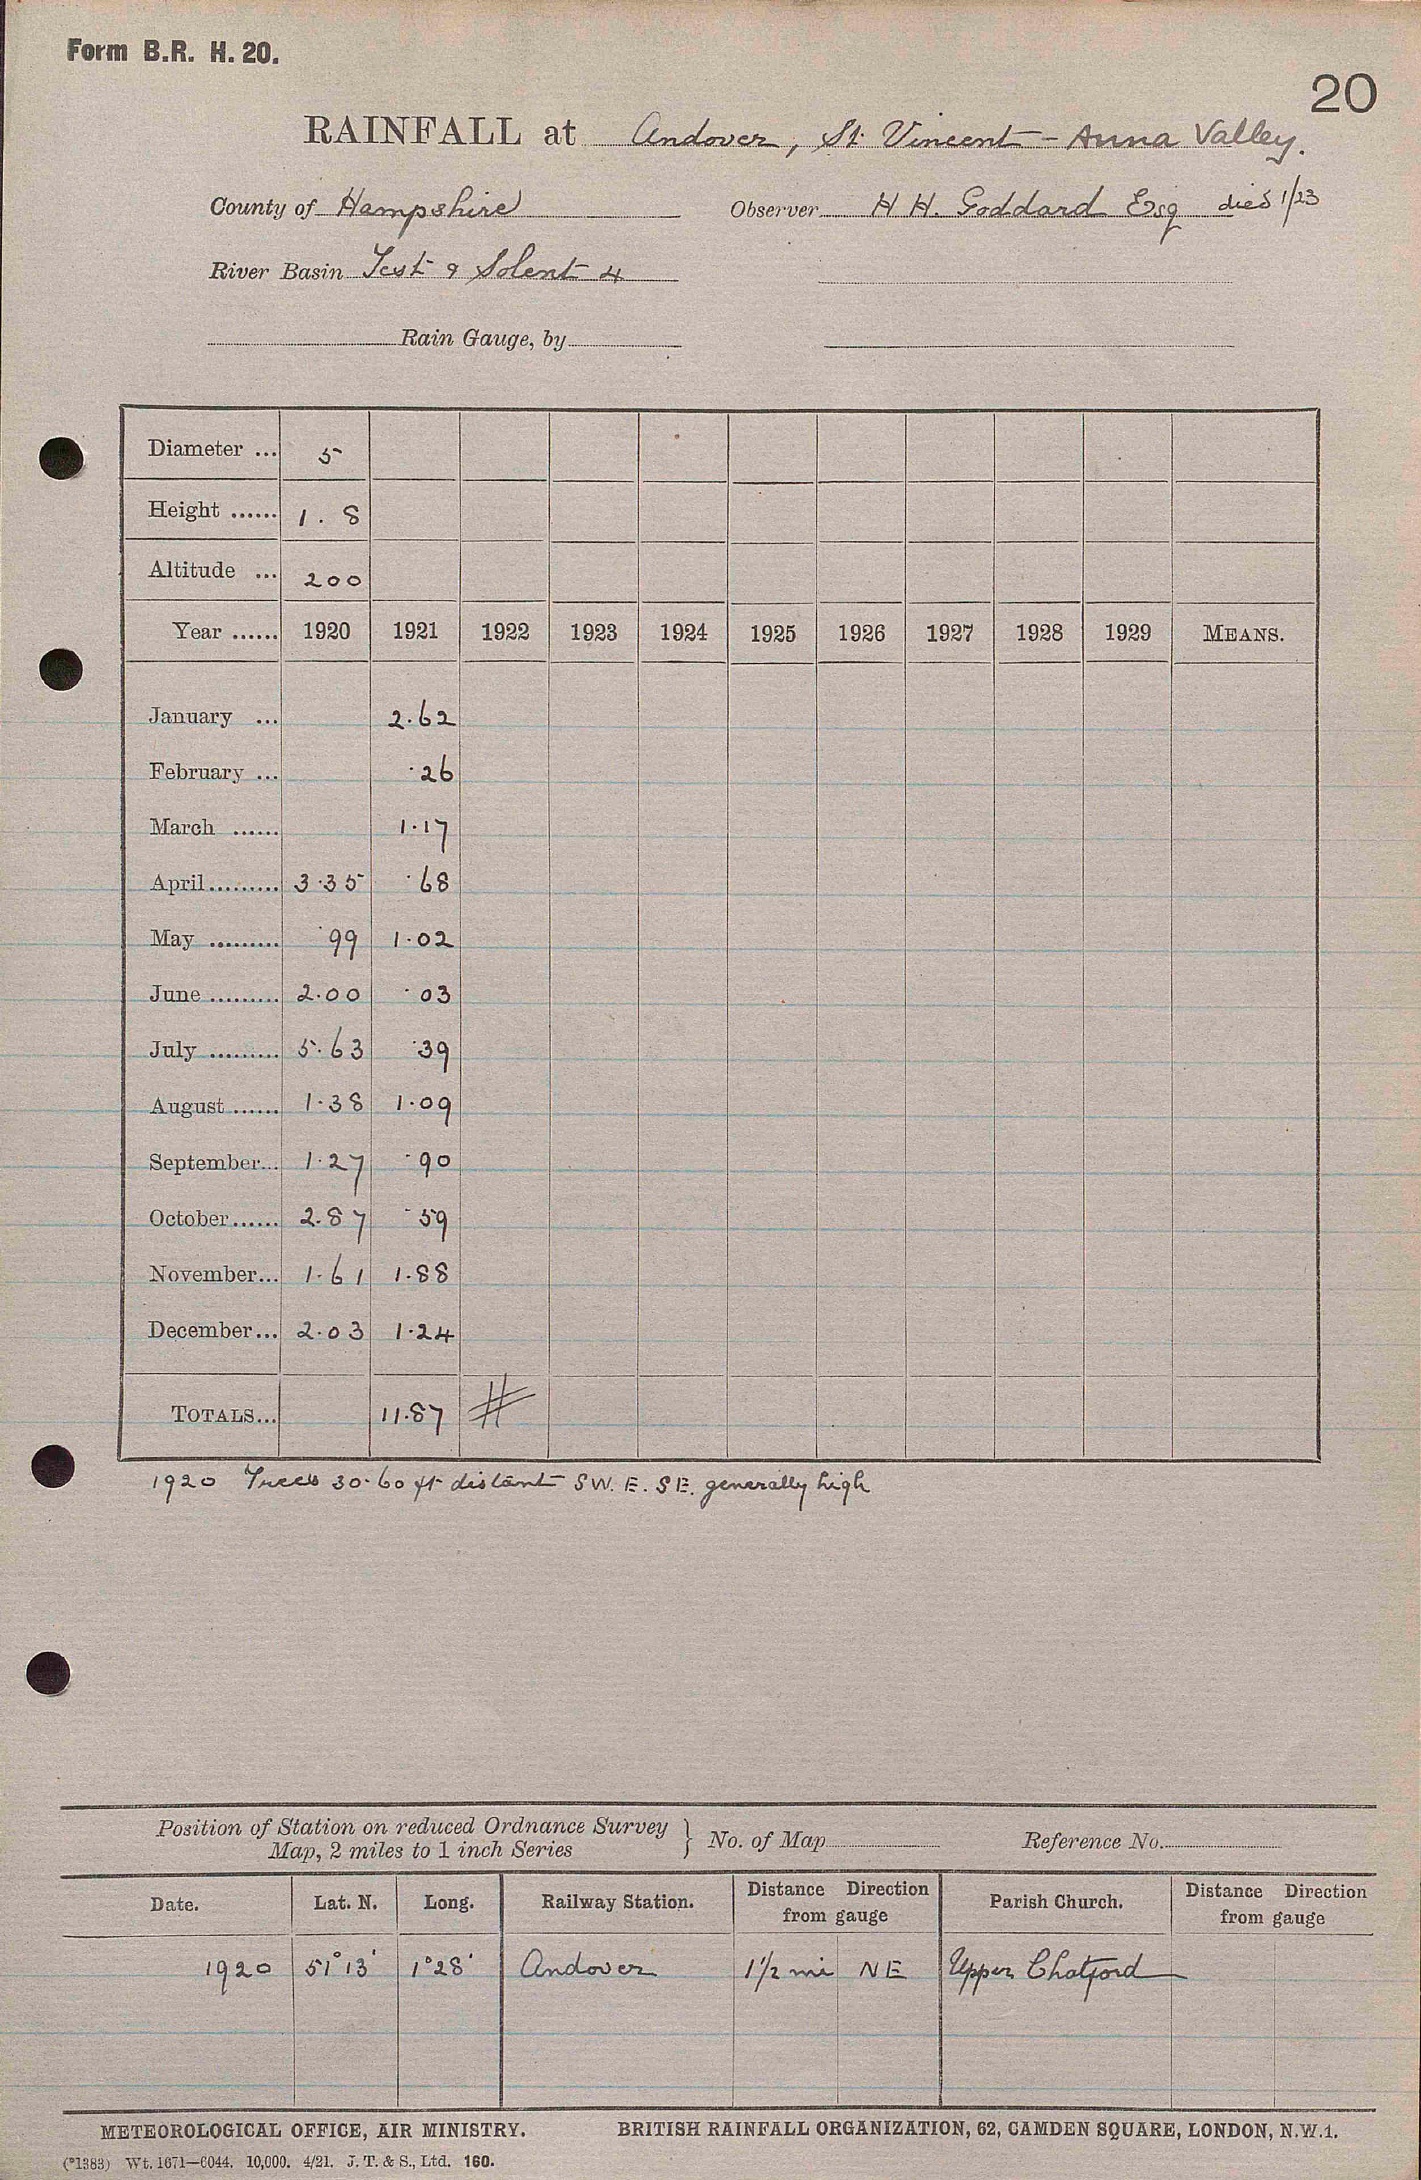 Form B.R. H. 20.
20
RAINFALL at Andover, St. Vincent - Anna Valley.
County of Hampshire Observer H H. Goddard Esq died 1/23
River Basin Test & Solent 4
Rain Gauge, by
Diameter ... 5
Height ...... 1. 8
Altitude ... 200
Year ...... 1920 1921 1922 1923 1924 1925 1926 1927 1928 1929 MEANS.
January ... 2.62
February ... .26
March ...... 1.17
April......... 3.35 .68
May ......... .99 1.02
June ......... 2.00 .03
July ......... 5.63 .39
August ...... 1.38 1.09
September... 1.27 .90
October...... 2.87 .59
November... 1.61 1.88
December... 2.03 1.24
TOTALS... 11.87 #
1920 Trees 30-60 ft distant SW. E. SE. generally high
Position of Station on reduced Ordnance Survey
Map, 2 miles to 1 inch Series } No. of Map Reference No.
Date. Lat. N. Long. Railway Station. Distance Direction from gauge Parish Church. Distance Direction from gauge
1920 51° 13' 1° 28' Andover 1 1/2 mi NE Upper Chatford
METEOROLOGICAL OFFICE, AIR MINISTRY. BRITISH RAINFALL ORGANIZATION, 62, CAMDEN SQUARE, LONDON, N.W.1.
(*1383) Wt. 1671—6044. 10,000. 4/21. J. T. & S., Ltd. 160.